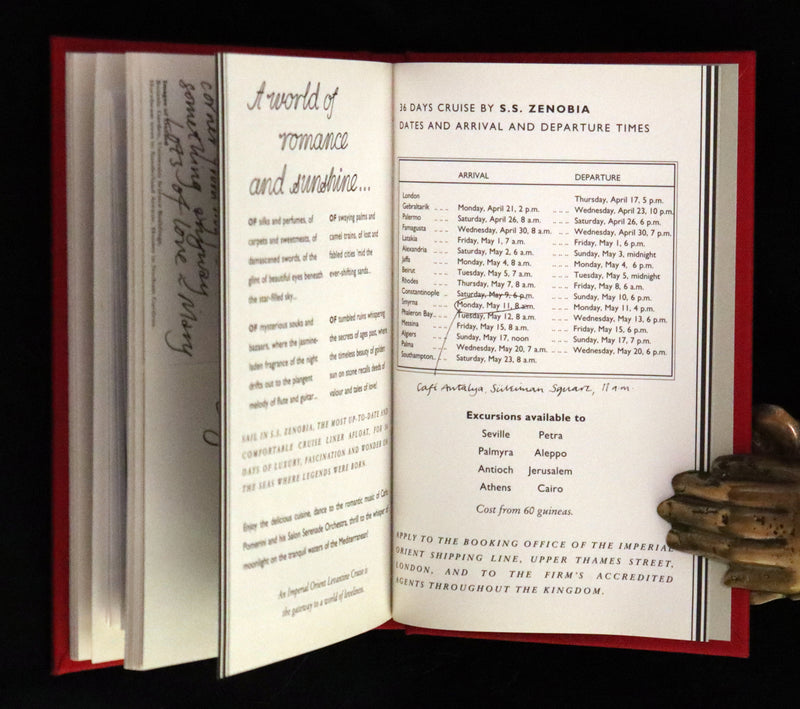 something anyway
lots of love - Mary
A world of
romance
and sunshine...
OF silks and perfumes, of
carpets and sweetmeats, of
damascened swords, of the
glint of beautiful eyes beneath
the star-filled sky...
OF swaying palms and
camel trains, of lost and
fabled cities 'mid the
ever-shifting sands...
OF mysterious souks and
bazaars, where the jasmine-
laden fragrance of the night
drifts out to the plangent
melody of flute and guitar...
OF tumbled ruins whispering
the secrets of ages past, where
the timeless beauty of golden
sun on stone recalls deeds of
valour and tales of love!
SAIL IN S.S. ZENOBIA, THE MOST UP-TO-DATE AND
COMFORTABLE CRUISE LINER AFLOAT, FOR 36
DAYS OF LUXURY, FASCINATION AND WONDER ON
THE SEAS WHERE LEGENDS WERE BORN.
Enjoy the delicious cuisine, dance to the romantic music of Carlo
Pomerini and his Salon Serenade Orchestra, thrill to the whisper of
moonlight on the tranquil waters of the Mediterranean!
An Imperial Orient Levantine Cruise is
the gateway to a world of loveliness.
36 DAYS CRUISE BY S.S. ZENOBIA
DATES AND ARRIVAL AND DEPARTURE TIMES
ARRIVAL DEPARTURE
London Thursday, April 17, 5 p.m.
Gebraltarik Monday, April 21, 2 p.m. Wednesday, April 23, 10 p.m.
Palermo Saturday, April 26, 8 a.m.
Famagusta Wednesday, April 30, 8 a.m. Wednesday, April 30, 7 p.m.
Latakia Friday, May 1, 7 a.m. Friday, May 1, 6 p.m.
Alexandria Saturday, May 2, 6 a.m. Sunday, May 3, midnight
Jaffa Monday, May 4, 8 a.m. Monday, May 4, 6 p.m.
Beirut Tuesday, May 5, 7 a.m. Tuesday, May 5, midnight
Rhodes Thursday, May 7, 8 a.m. Friday, May 8, 6 a.m.
Constantinople Saturday, May 9, 6 p.m. Sunday, May 10, 6 p.m.
Smyrna Monday, May 11, 8 a.m. Monday, May 11, 4 p.m.
Phaleron Bay Tuesday, May 12, 8 a.m. Wednesday, May 13, 6 p.m.
Messina Friday, May 15, 8 a.m. Friday, May 15, 6 p.m.
Algiers Sunday, May 17, noon Sunday, May 17, 7 p.m.
Palma Wednesday, May 20, 7 a.m. Wednesday, May 20, 6 p.m.
Southampton Saturday, May 23, 8 a.m.
Café Antalya, Suleiman Square, 11 a.m.
Excursions available to
Seville Petra
Palmyra Aleppo
Antioch Jerusalem
Athens Cairo
Cost from 60 guineas.
APPLY TO THE BOOKING OFFICE OF THE IMPERIAL
ORIENT SHIPPING LINE, UPPER THAMES STREET,
LONDON, AND TO THE FIRM'S ACCREDITED
AGENTS THROUGHOUT THE KINGDOM.